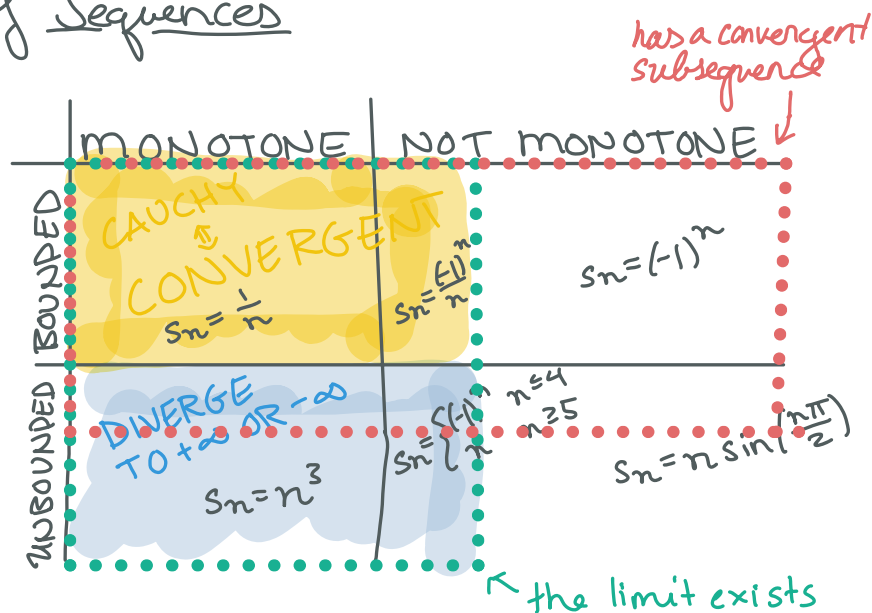 Sequences
has a convergent
subsequence
MONOTONE NOT MONOTONE
BOUNDED
CAUCHY
⇕
CONVERGENT
Sn = 1/n
Sn = (-1)^n/n
Sn = (-1)^n
UNBOUNDED
DIVERGE
TO +∞ OR -∞
Sn = n³
Sn = { (-1)^n n≤4
n n≥5
Sn = n sin(nπ/2)
the limit exists